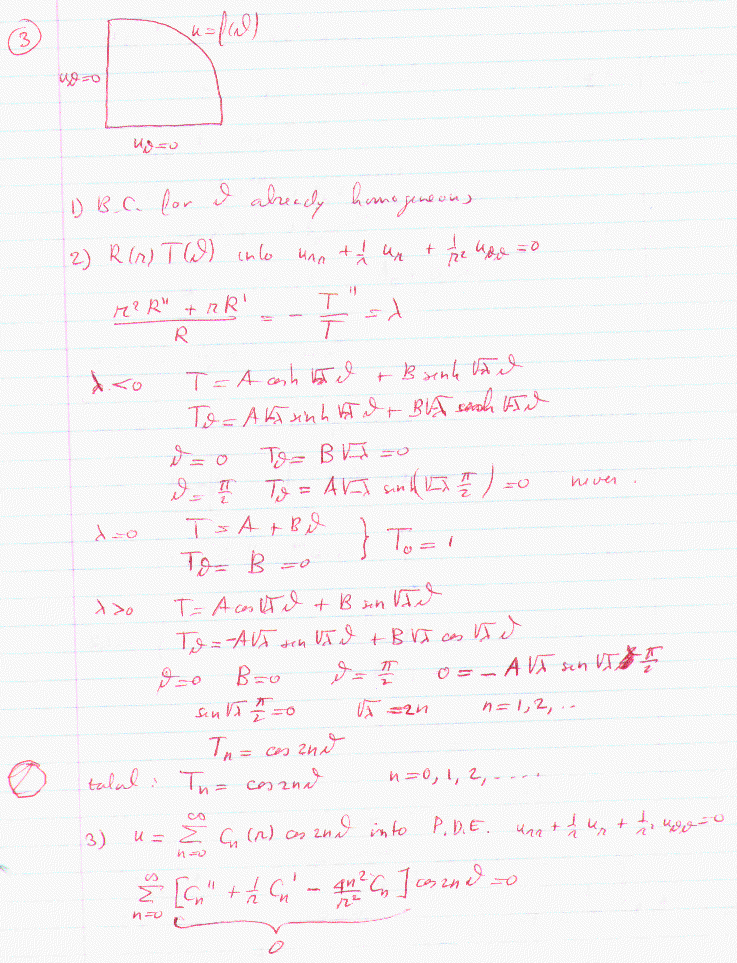 ③
u=f(ϑ)
u_ϑ=0
u_ϑ=0
1) B.C. for ϑ already homogeneous
2) R(r) T(ϑ) into u_rr + 1/r u_r + 1/r² u_ϑϑ = 0
(r²R" + rR')/R = - T"/T = λ
λ<0 T = A cosh √-λ ϑ + B sinh √-λ ϑ
T_ϑ = A√-λ sinh √-λ ϑ + B√-λ cosh √-λ ϑ
ϑ=0 T_ϑ = B√-λ = 0
ϑ = π/2 T_ϑ = A√-λ sinh(√-λ π/2) = 0 never.
λ=0 T = A + Bϑ } T₀ = 1
T_ϑ = B = 0
λ>0 T = A cos √λ ϑ + B sin √λ ϑ
T_ϑ = -A√λ sin √λ ϑ + B√λ cos √λ ϑ
ϑ=0 B=0 ϑ = π/2 0 = - A√λ sin √λ π/2
sin √λ π/2 = 0 √λ = 2n n=1,2,..
T_n = cos 2nϑ
total : T_n = cos 2nϑ n=0, 1, 2, .....
3) u = ∑_{n=0}^∞ C_n(r) cos 2nϑ into P.D.E. u_rr + 1/r u_r + 1/r² u_ϑϑ = 0
∑_{n=0}^∞ [C_n" + 1/r C_n' - 4n²/r² C_n] cos 2nϑ = 0
0